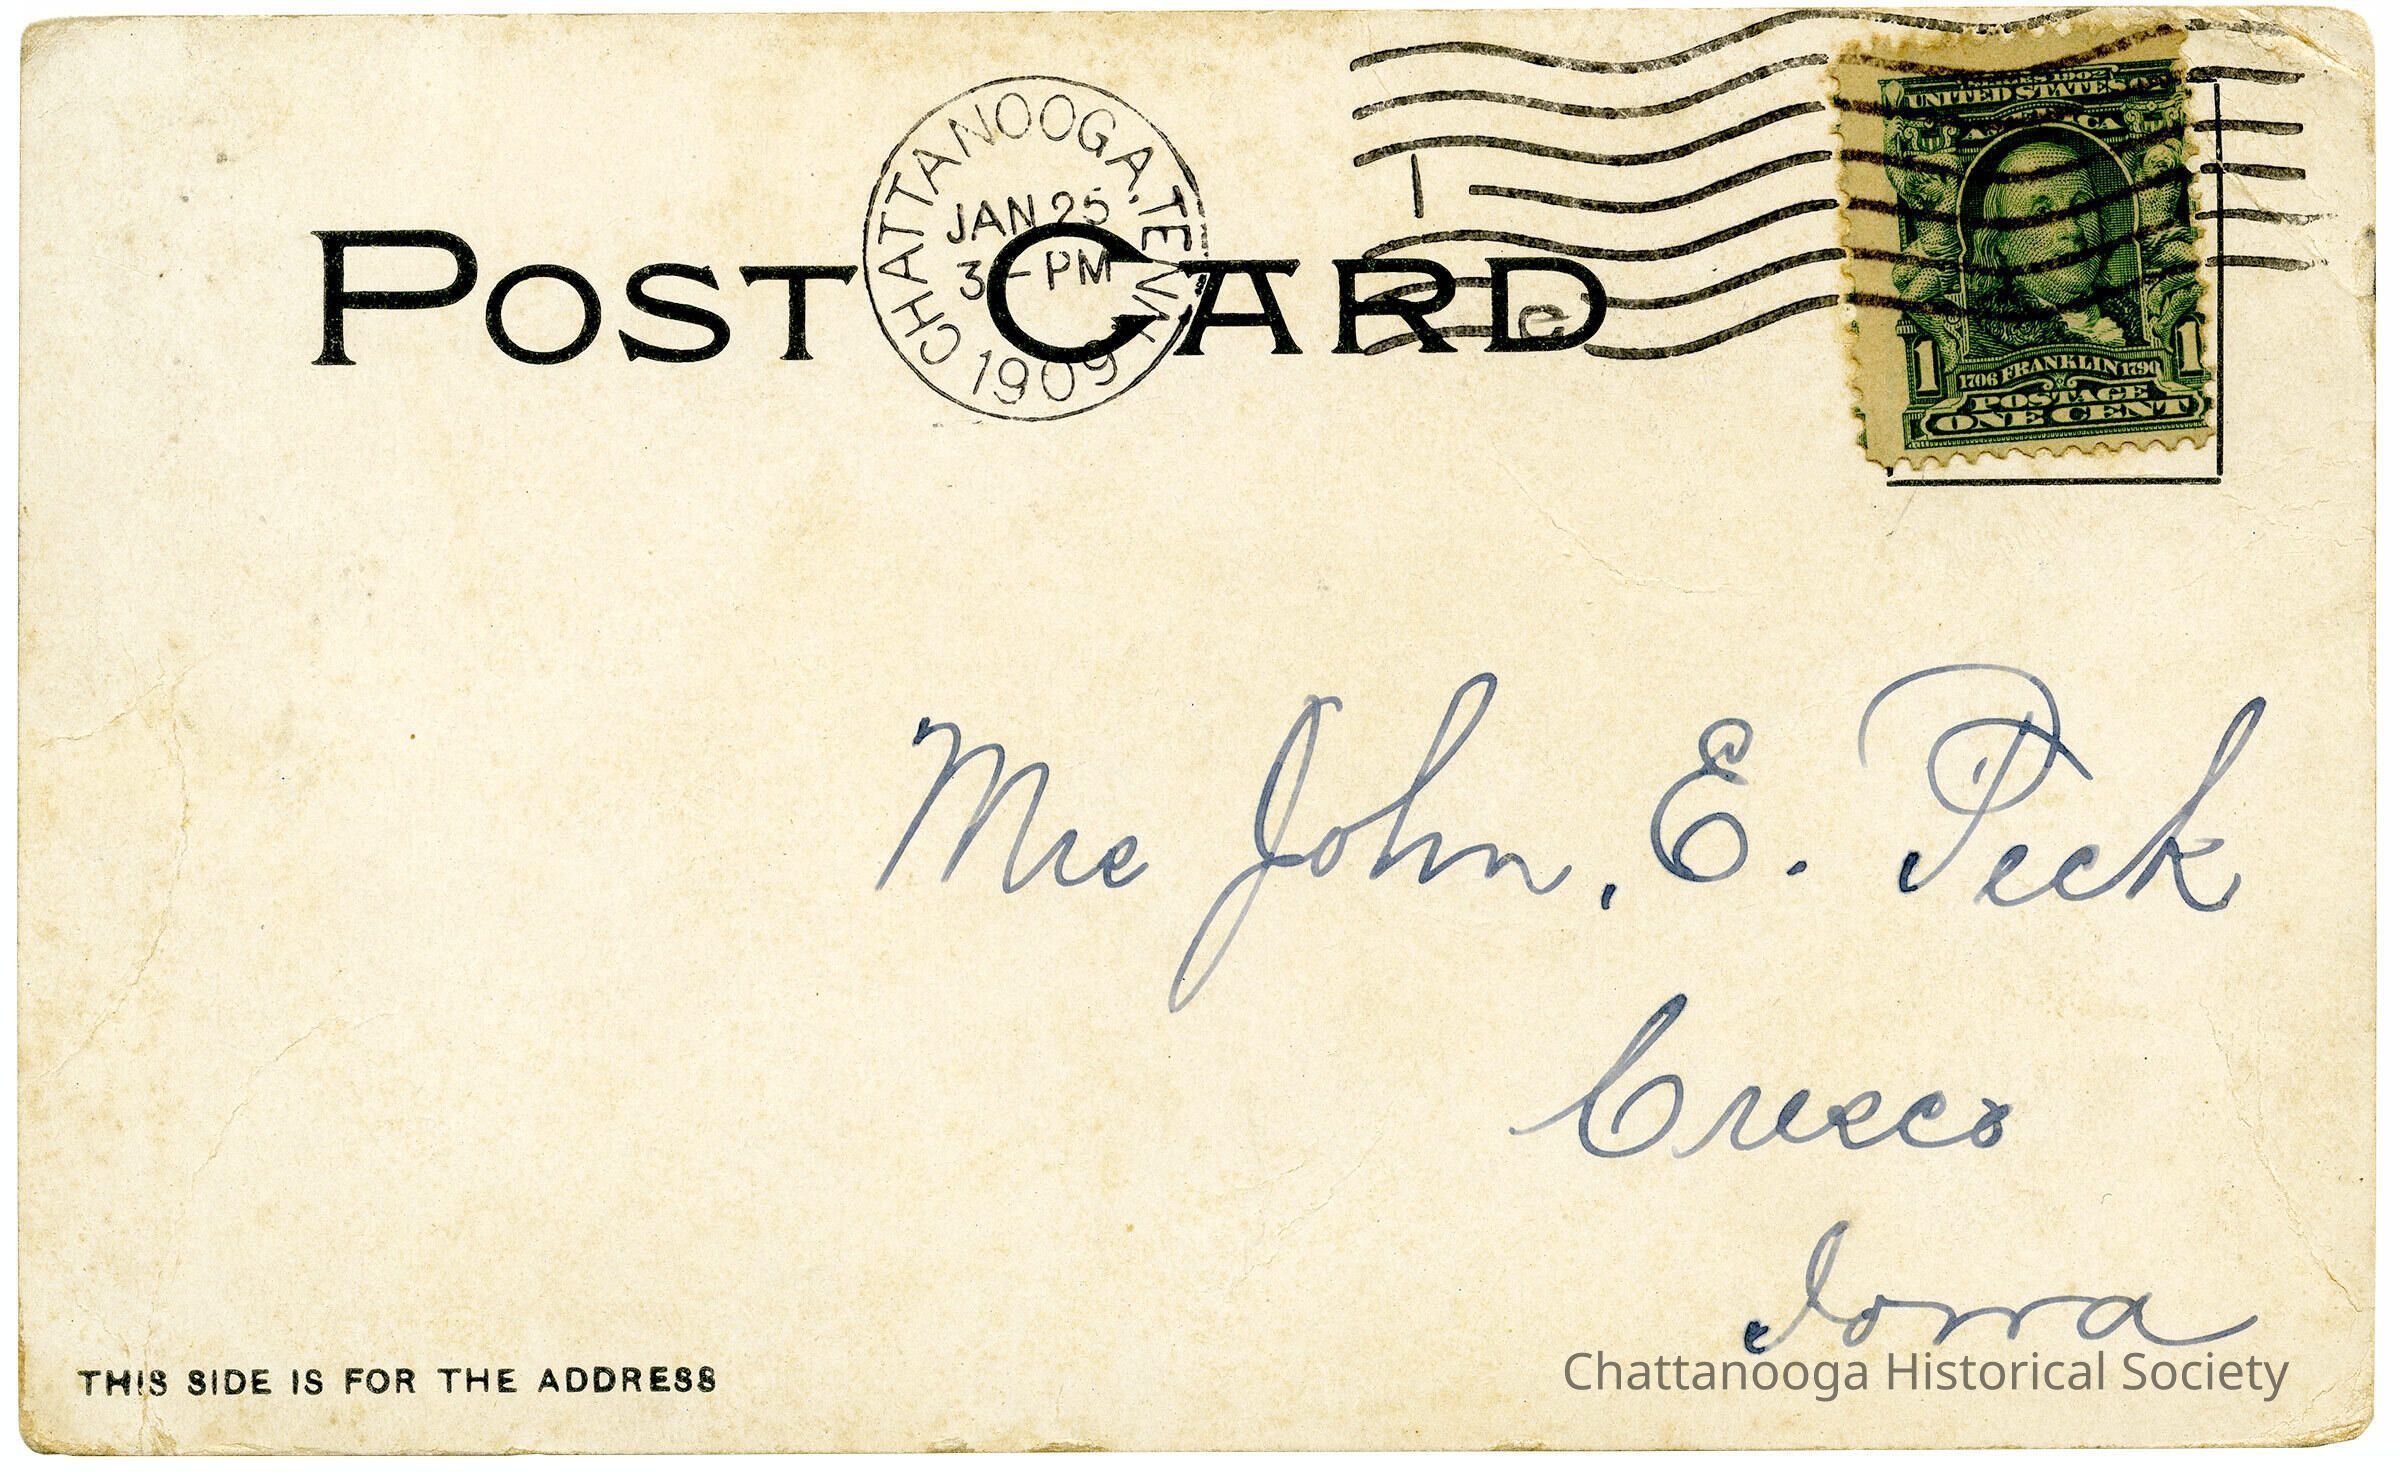 POST CARD
CHATTANOOGA, TENN.
JAN 25
3 - PM
1909
1
SERIES 1902
UNITED STATES OF
AMERICA
1706 FRANKLIN 1790
1 1
POSTAGE
ONE CENT
Mrs John, E. Peck
Cresco
Iowa
THIS SIDE IS FOR THE ADDRESS
Chattanooga Historical Society